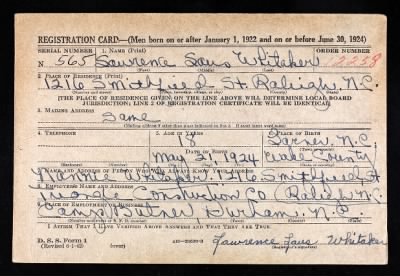 REGISTRATION CARD—(Men born on or after January 1, 1922 and on or before June 30, 1924)
SERIAL NUMBER 1. NAME (Print) ORDER NUMBER
N 565 Lawrence Whitaker 12238
(First) (Middle) (Last)
2. PLACE OF RESIDENCE (Print)
1216 Smithfield St Raleigh N.C.
[THE PLACE OF RESIDENCE GIVEN ON THE LINE ABOVE WILL DETERMINE LOCAL BOARD
JURISDICTION; LINE 2 OF REGISTRATION CERTIFICATE WILL BE IDENTICAL]
3. MAILING ADDRESS
Same
4. TELEPHONE 5. AGE IN YEARS 6. PLACE OF BIRTH
18 Garner N.C.
DATE OF BIRTH
May 21, 1924 Wake County
7. NAME AND ADDRESS OF PERSON WHO WILL ALWAYS KNOW YOUR ADDRESS
Whitaker 1216 Smithfield St
8. EMPLOYER'S NAME AND ADDRESS
Construction Co. Raleigh N.C.
9. PLACE OF EMPLOYMENT OR BUSINESS
Camp Butner Durham N.C.
I AFFIRM THAT I HAVE VERIFIED ABOVE ANSWERS AND THAT THEY ARE TRUE.
D. S. S. Form 1
Lawrence Whitaker